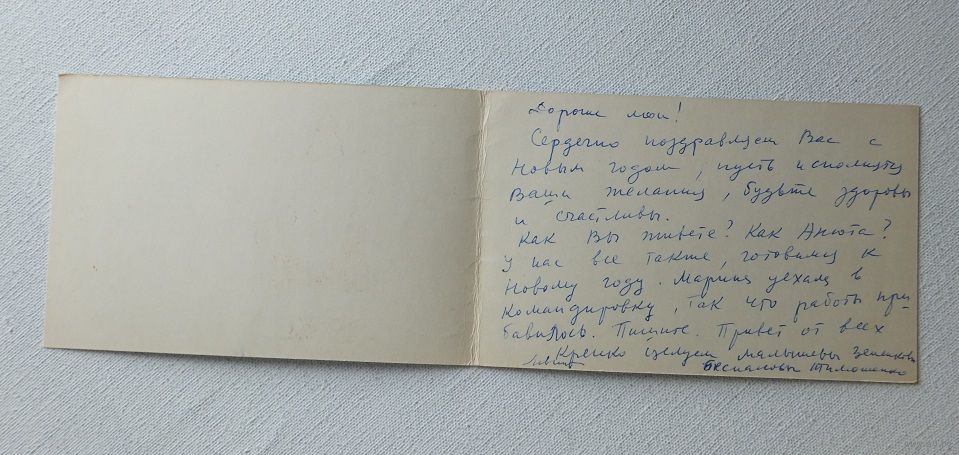 Дорогие мои!
Сердечно поздравляем Вас с
Новым годом, пусть исполнятся
Ваши желания, будьте здоровы
и счастливы.
Как Вы живете? Как Анюта?
У нас все также, готовимся к
Новому году. Марина уехала в
командировку, так что работы при-
бавилось. Пишите. Привет от всех
Крепко целуем Малышевы
Беспаловы Тимошенко